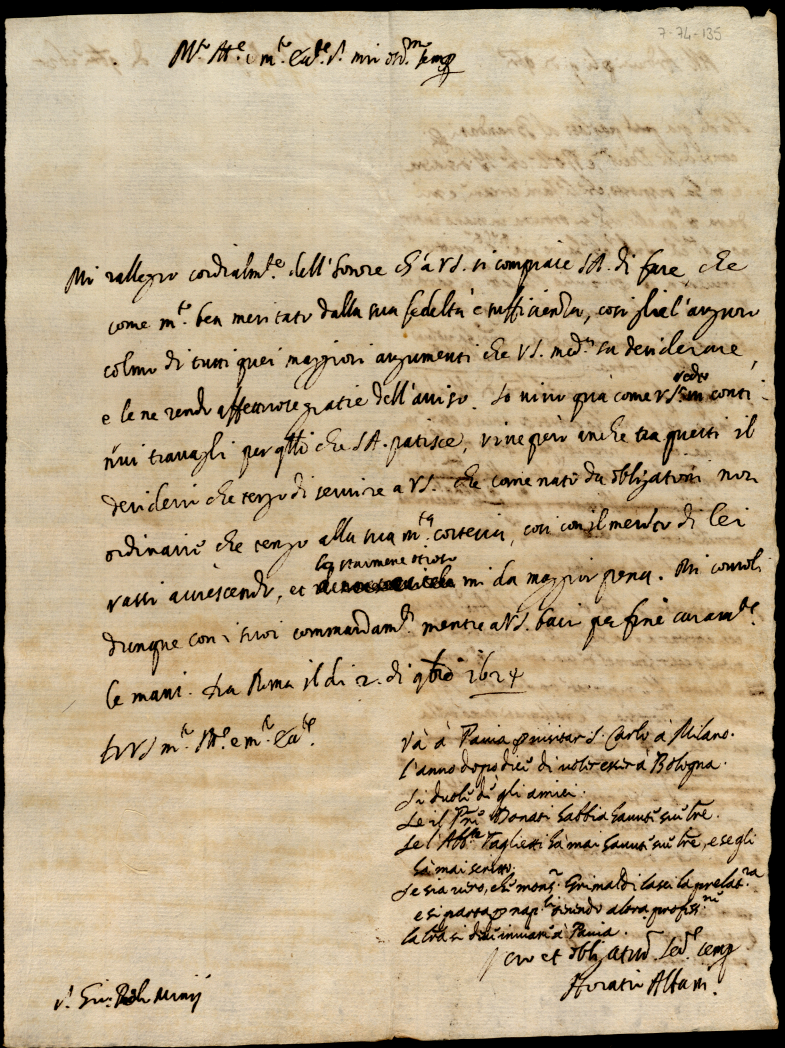 7-74-135
M.to Ill.e e m.to Ecc.te S.r mio oss.mo sempre
Mi rallegro cordialm.te dell'honore ch'à VS. si compiace SA. di fare, che
come m.to ben meritato dalla sua fedeltà e sufficienza, così glie l'auguro
colmo di tutti quei maggiori argumenti che VS. med.a sa desiderare,
e le ne rendo affettuose gratie dell'auiso. Io uiuo quà come VS. uede conti-
nui trauagli per q.lli che SA. patisce, uiue però anche tra questi il
desiderio che tengo di seruire a VS. che come nato da obligationi non
ordinarie che tengo alla sua m.ta cortesia, così con il merito di lei
uassi accrescendo, et lo starmene otioso mi da maggior pena. Mi consoli
dunque con i suoi commandam.ti mentre a VS. bacio per fine caram.te
le mani. Roma il di 2. di 9bre 1624
Di VS m.to Ill.e e m.to Ecc.te
Và à Pauia per uisitar S. Carlo à Milano.
l'anno dopo dice di uoler esser à Bologna.
Si duole de gli amici.
Se il Donati habbia hauuto sue l're.
Se l'Abb.te Taglietti hà mai hauuto sue l're, e se gli
hà mai scritto.
Se sia uero, che mons.r Grimaldi lasci la prelat.ra
e si parta per nap.li
la l'ra si deue inuiare à Pauia.
Ser.re et oblig.mo sempre
Horatio Albani.
S. Gio. Minij